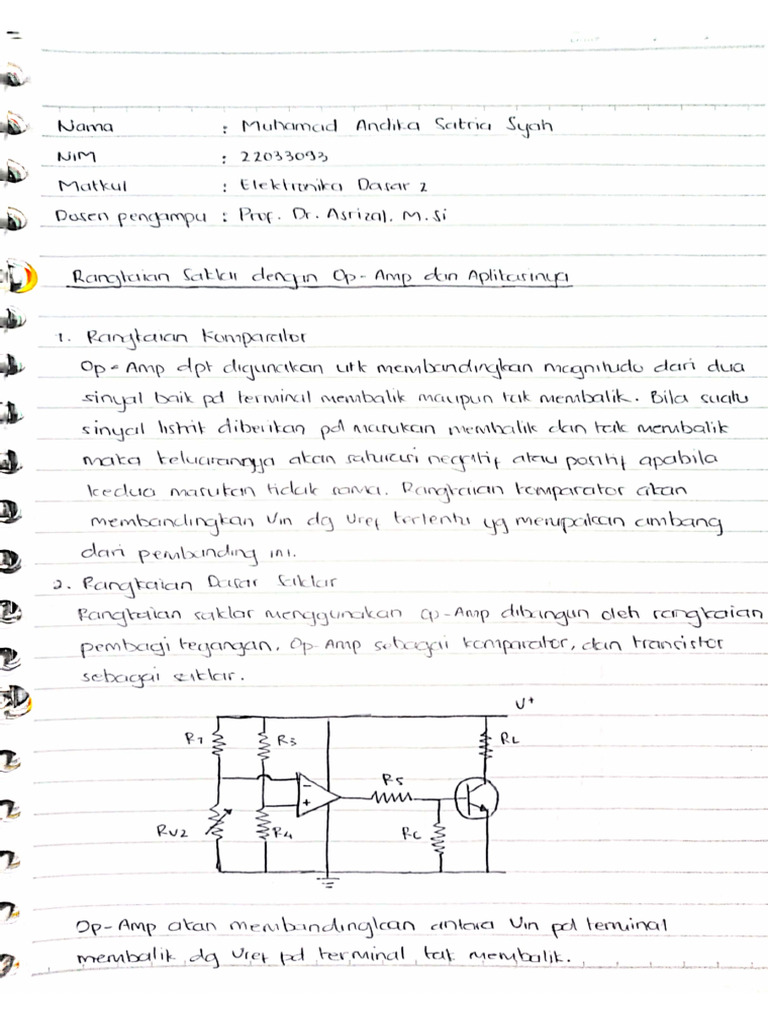 Nama : Muhamad Andika Satria Syah
NIM : 22033093
Matkul : Elektronika Dasar 2
Dosen pengampu : Prof. Dr. Asrizal, M.Si
Rangkaian Saklar dengan Op-Amp dan Aplikasinya
1. Rangkaian Komparator
Op-Amp dpt digunakan utk membandingkan magnitudo dari dua
sinyal baik pd terminal membalik maupun tak membalik. Bila suatu
sinyal listrik diberikan pd masukan membalik dan tak membalik
maka keluarannya akan saturasi negatif atau positif apabila
kedua masukan tidak sama. Rangkaian komparator akan
membandingkan Vin dg Vref tertentu yg merupakan ambang
dari pembanding ini.
2. Rangkaian Dasar Saklar
Rangkaian saklar menggunakan Op-Amp dibangun oleh rangkaian
pembagi tegangan, Op-Amp sebagai komparator, dan transistor
sebagai saklar.
V+
R1 R3 RL
R5
- +
RV2 R4 RC
Op-Amp akan membandingkan antara Vin pd terminal
membalik dg Vref pd terminal tak membalik.